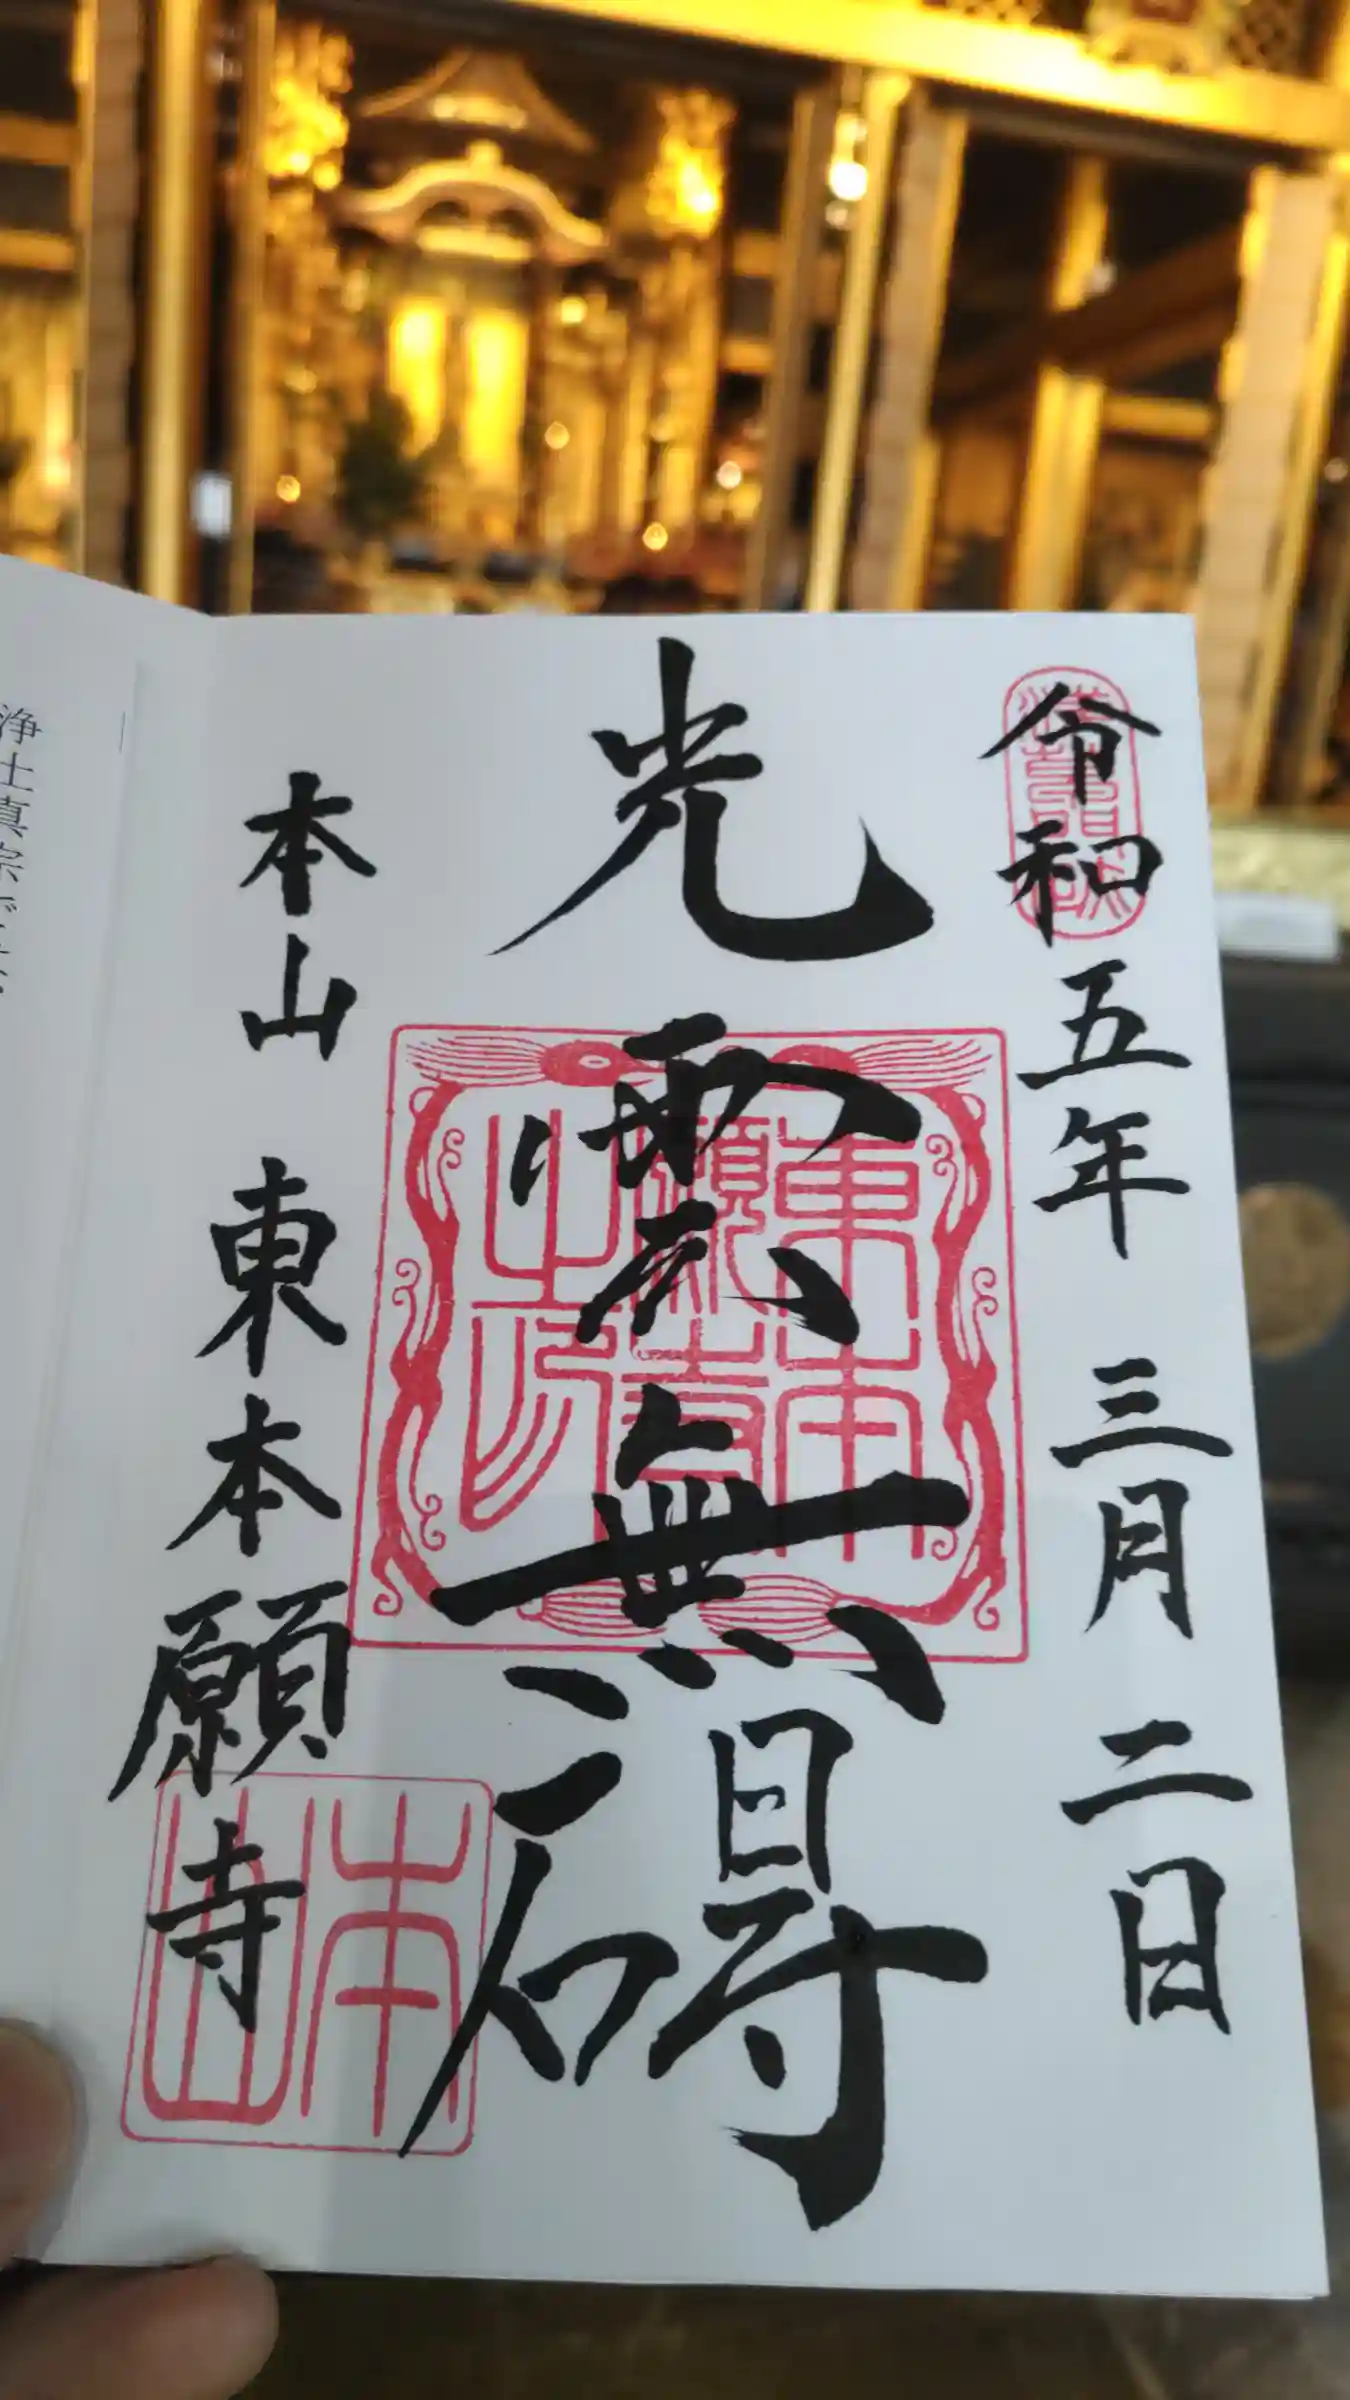 令和五年 三月 二日
光雲無碍
本山 東本願寺
東本願寺之印
本山
浄土真宗